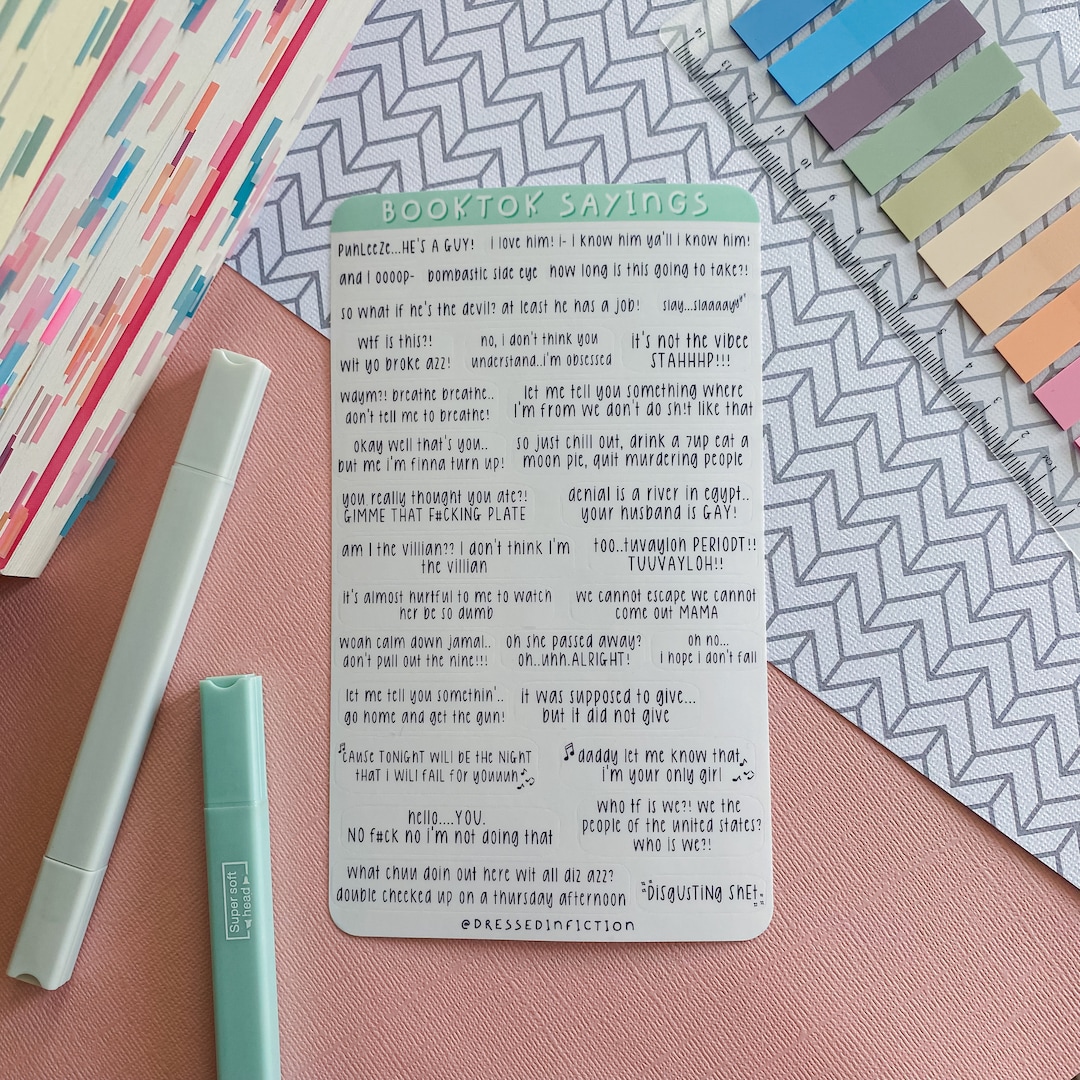 BOOKTOK SAYINGS
PUHLeeZe...HE'S A GUY! I love him! I- I know him ya'll I know him!
and I OOOOP- bombastic side eye how long is this going to take?!
so what if he's the devil? at least he has a job! slay...slaaaayyy
wtf is this?!
wit yo broke azz!
no, I don't think you
understand..i'm obsessed
it's not the vibee
STAHHHP!!!
waym?! breathe breathe..
don't tell me to breathe!
let me tell you something where
I'm from we don't do sh!t like that
okay well that's you..
but me i'm finna turn up!
so just chill out, drink a 7up eat a
moon pie, quit murdering people
you really thought you ate?!
GIMME THAT F#CKING PLATE
denial is a river in egypt..
your husband is GAY!
am I the villian?? I don't think I'm
the villian
too..tuvayloh PERIODT!!
TUUVAYLOH!!
it's almost hurtful to me to watch
her be so dumb
we cannot escape we cannot
come out MAMA
woah calm down jamal..
don't pull out the nine!!!
oh she passed away?
oh..uhh.ALRIGHT!
oh no...
I hope I don't fall
let me tell you somethin'..
go home and get the gun!
it was supposed to give...
but it did not give
'CAUSE TONIGHT WILL BE THE NIGHT
THAT I WILL FALL FOR YOUUUH
daddy let me know that
i'm your only girl
hello....YOU.
NO f#ck no i'm not doing that
who tf is we?! we the
people of the united states?
who is we?!
what chuu doin out here wit all diz azz?
double cheeked up on a thursday afternoon
DISGUSTING SHET
@DRESSEDINFICTION
Super soft
head